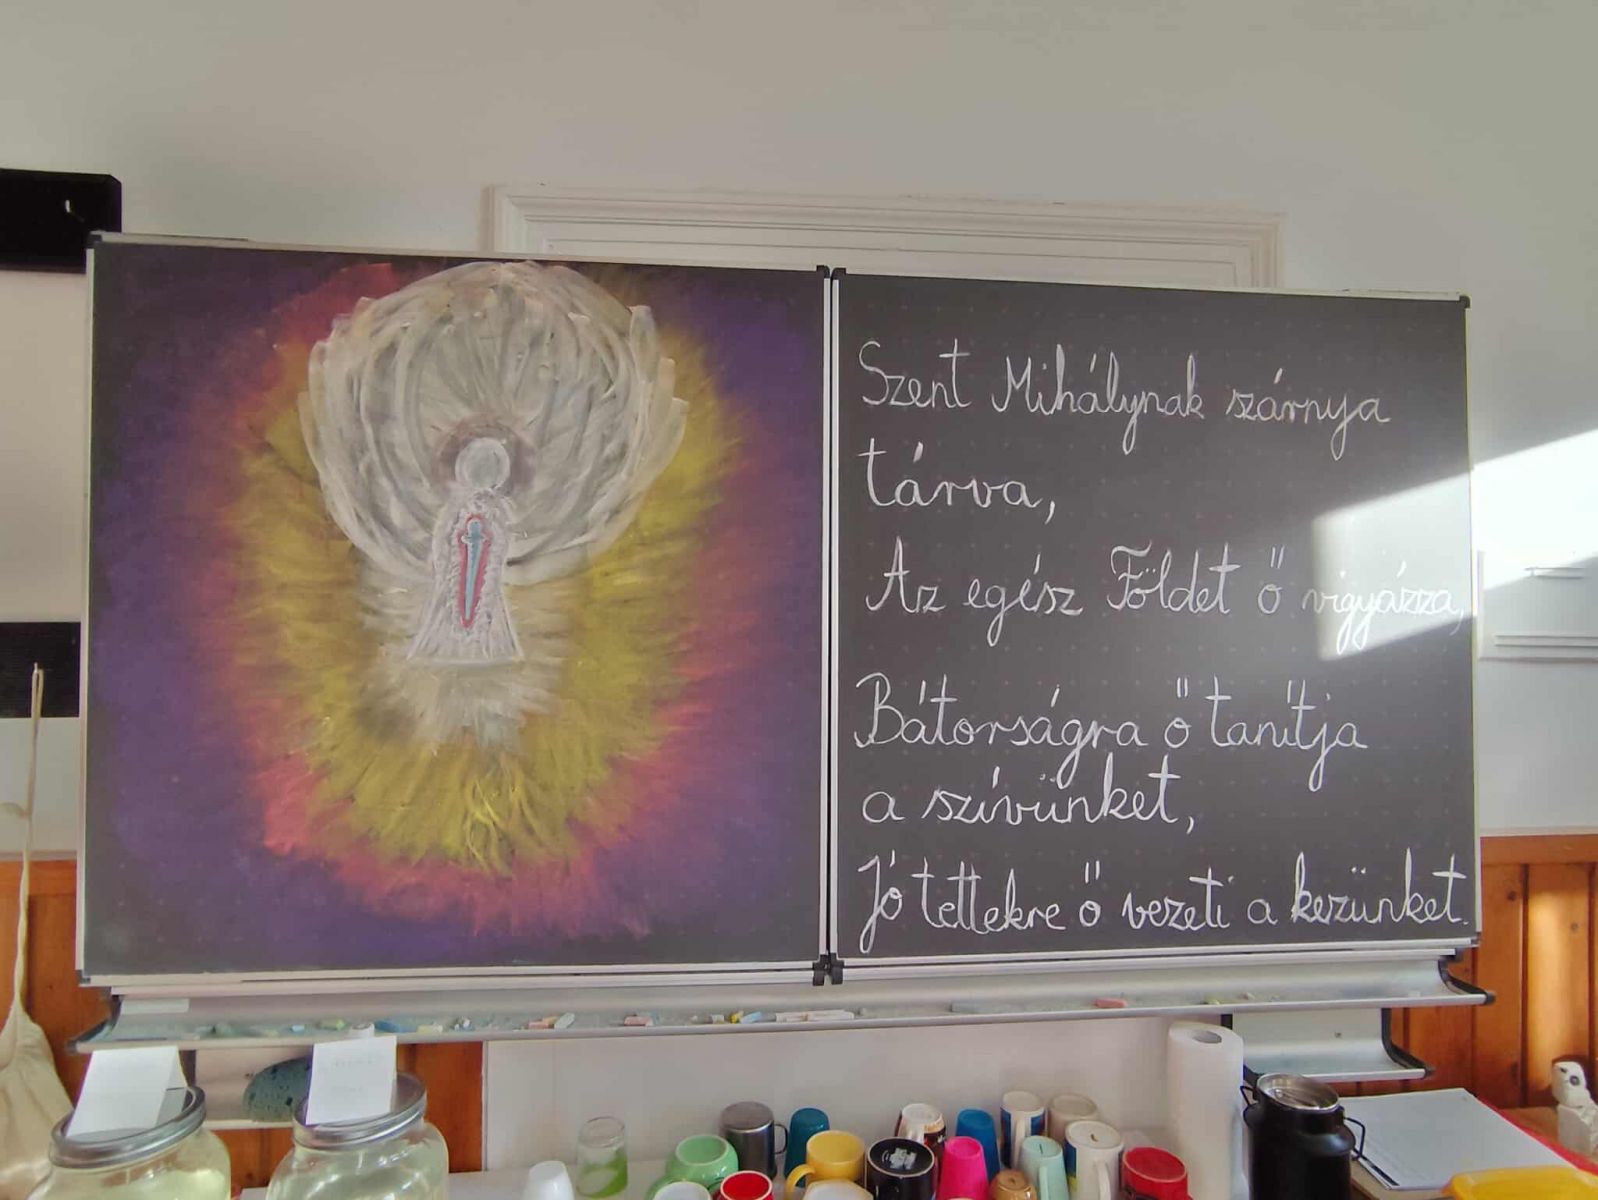 Szent Mihálynak szárnya
tárva,
Az egész Földet ő vigyázza,
Bátorságra ő tanítja
a szívünket,
Jó tettekre ő vezeti a kezünket.